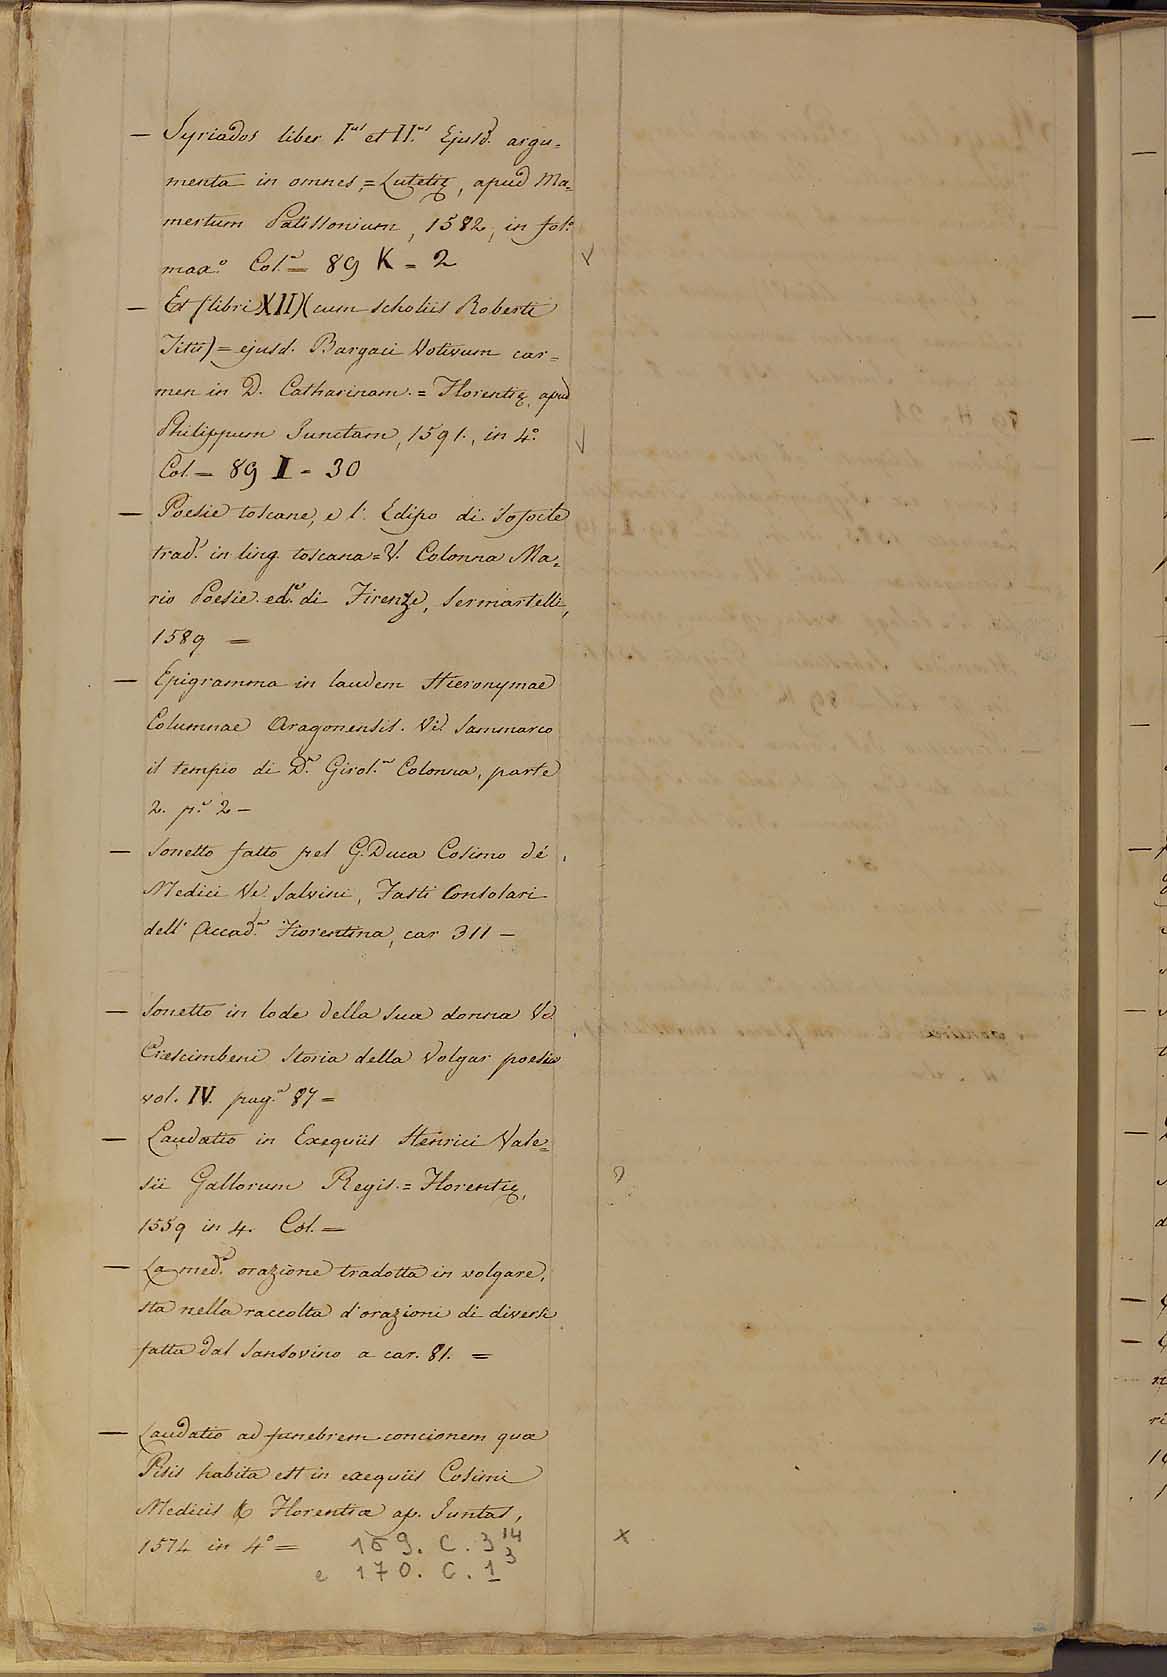 — Syriados liber I.us et II.us Ejusd. argu=
menta in omnes, = Lutetię, apud Ma=
mertum Patissonium, 1582, in fol.o
max.o Col.e = 89 K = 2
— Et (libri XII) (cum scholiis Roberti
Titii) = ejusd. Bargaei Votivum car=
men in D. Catharinam. = Florentię, apud
Philippum Junctam, 1591., in 4.o
Col — 89 I - 30
— Poesie toscane, e l'Edipo di Sofocle
trad.o in ling. toscana = V. Colonna Ma=
rio Poesie. ed.e di Firenze, Sermartelli,
1589 =
— Epigramma in laudem Hieronymae
Columnae Aragonensis. Ve. Sammarco
il tempio di D.a Girol.a Colonna, parte
2. p.a 2 —
— Sonetto fatto pel G. Duca Cosimo dé
Medici Ve. Salvini, Fasti Consolari
dell' Accad.a Fiorentina, car 311 —
— Sonetto in lode della sua donna Ve.
Crescimbeni Storia della Volgar poesia
vol. IV. pag.a 87 =
— Laudatio in Exequiis Henrici Vale=
sii Gallorum Regis. = Florentię,
1559 in 4. Col. =
— La med.a orazione tradotta in volgare,
sta nella raccolta d'orazioni di diversi
fatta dal Sansovino a car. 81. =
— Laudatio ad funebrem concionem quae
Pisis habita est in exequiis Cosimi
Medicis & Florentiae ap. Juntas,
1574 in 4.o = 169. C. 3 14
e 170. C. 1 3